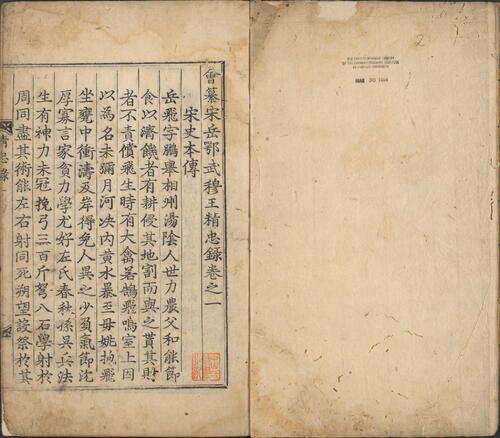 會纂宋岳鄂武穆王精忠錄卷之一
宋史本傳
岳飛字鵬舉相州湯陰人世力農父和能節
食以濟饑者有耕侵其地割而與之貰其財
者不責償飛生時有大禽若鵠飛鳴室上因
以為名未彌月河决內黃水暴至母姚抱飛
坐甕中衝濤及岸得免人異之少負氣節沈
厚寡言家貧力學尤好左氏春秋孫吳兵法
生有神力未冠挽弓三百斤弩八石學射於
周同盡其術能左右射同死朔望設祭於其
精忠錄
2
MAR 20